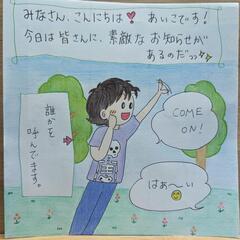 みなさん、こんにちは❣ あいこです!
今日は皆さんに、素敵なお知らせが
あるのだっっ✨
誰かを
呼んでます。
COME
ON!
はぁ〜い